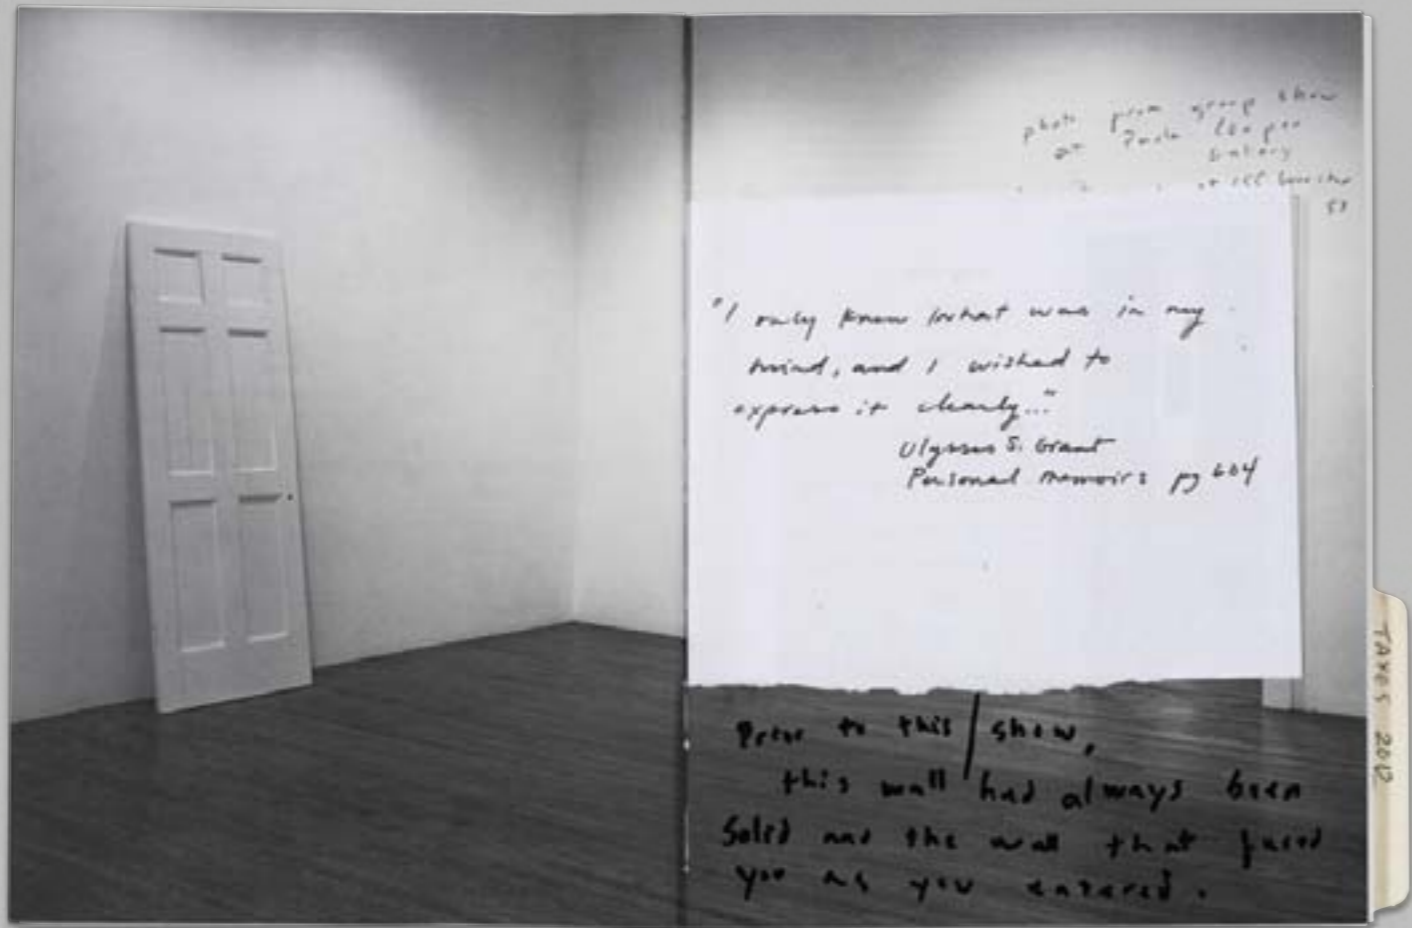 photo from group show
at Paula Cooper
Gallery
at 155 Wooster
"I only knew what was in my
mind, and I wished to
express it clearly..."
Ulysses S. Grant
Personal Memoirs pg 604
Prior to this show,
this wall had always been
solid and the wall that faced
you as you entered.
TAXES 2012